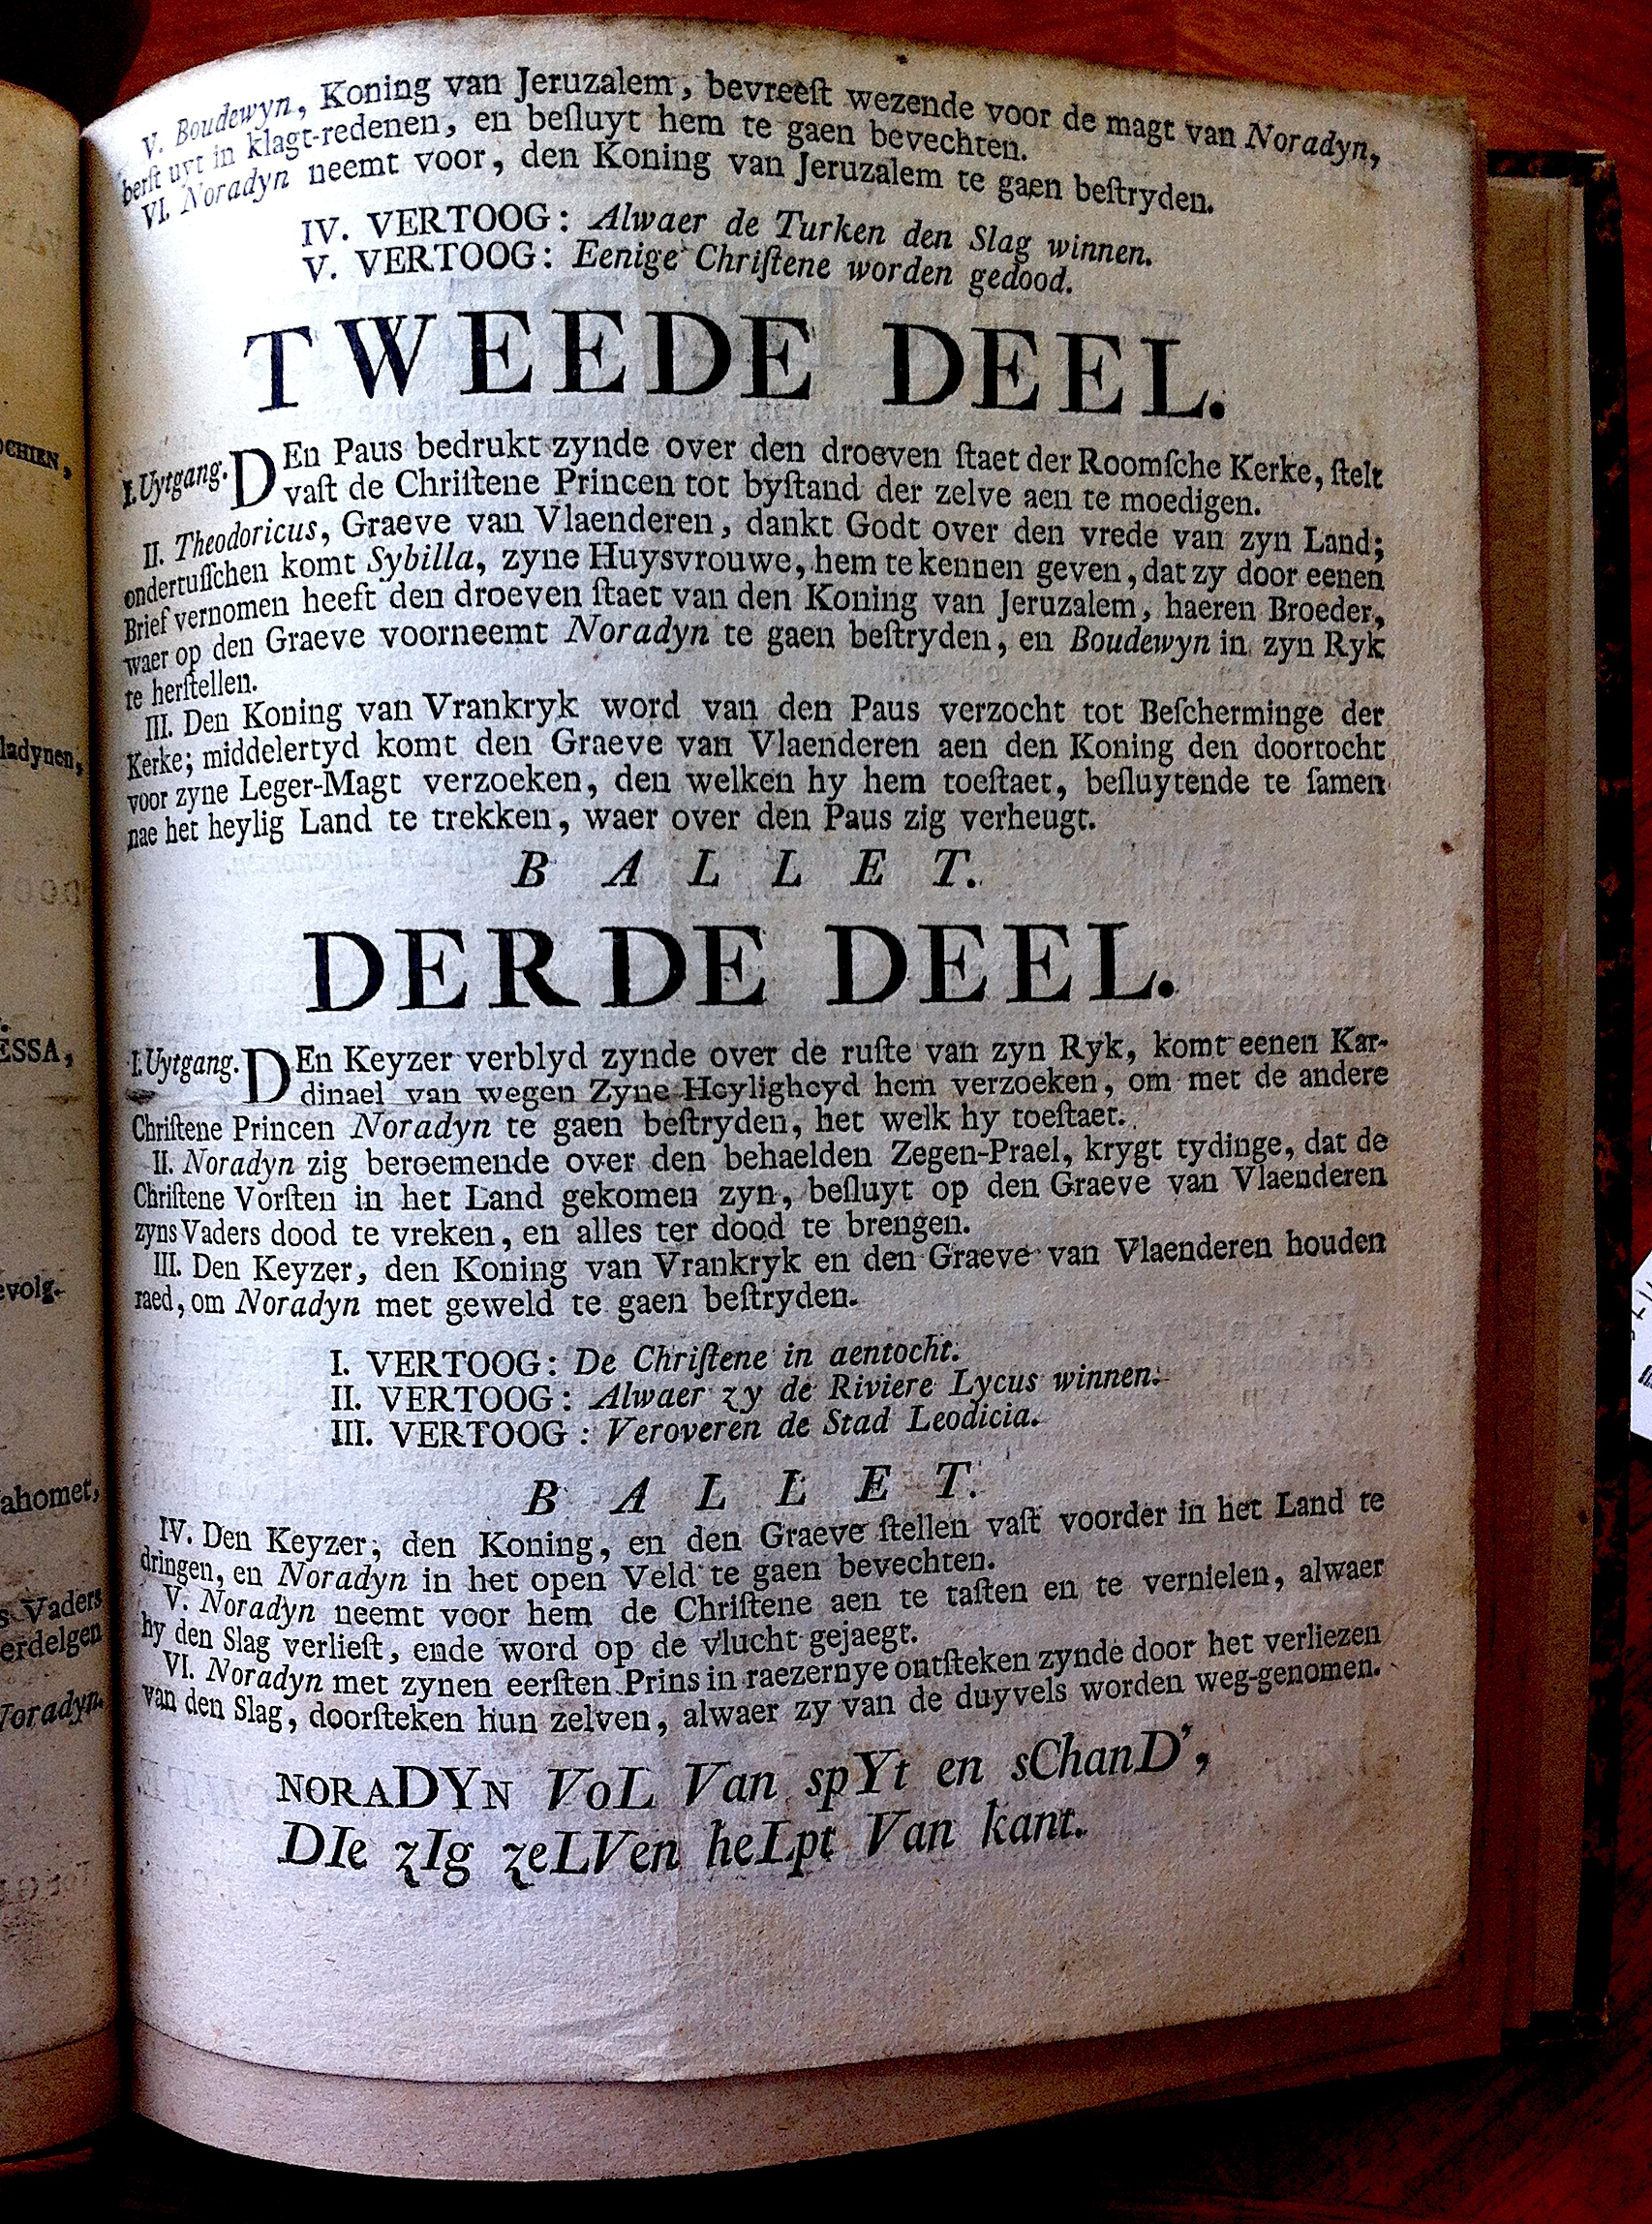 V. Boudewyn, Koning van Jeruzalem, bevreeſt wezende voor de magt van Noradyn,
berſt uyt in klagt-redenen, en beſluyt hem te gaen bevechten.
VI. Noradyn neemt voor, den Koning van Jeruzalem te gaen beſtryden.
IV. VERTOOG: Alwaer de Turken den Slag winnen.
V. VERTOOG: Eenige Chriſtene worden gedood.
TWEEDE DEEL.
I. Uytgang. DEn Paus bedrukt zynde over den droeven ſtaet der Roomſche Kerke, ſtelt
vaſt de Chriſtene Princen tot byſtand der zelve aen te moedigen.
II. Theodoricus, Graeve van Vlaenderen, dankt Godt over den vrede van zyn Land;
ondertuſſchen komt Sybilla, zyne Huysvrouwe, hem te kennen geven, dat zy door eenen
Brief vernomen heeft den droeven ſtaet van den Koning van Jeruzalem, haeren Broeder,
waer op den Graeve voorneemt Noradyn te gaen beſtryden, en Boudewyn in zyn Ryk
te herſtellen.
III. Den Koning van Vrankryk word van den Paus verzocht tot Beſcherminge der
Kerke; middelertyd komt den Graeve van Vlaenderen aen den Koning den doortocht
voor zyne Leger-Magt verzoeken, den welken hy hem toeſtaet, beſluytende te ſamen
nae het heylig Land te trekken, waer over den Paus zig verheugt.
BALLET.
DERDE DEEL.
I. Uytgang. DEn Keyzer verblyd zynde over de ruſte van zyn Ryk, komt eenen Kar-
dinael van wegen Zyne Heyligheyd hem verzoeken, om met de andere
Chriſtene Princen Noradyn te gaen beſtryden, het welk hy toeſtaet.
II. Noradyn zig beroemende over den behaelden Zegen-Prael, krygt tydinge, dat de
Chriſtene Vorſten in het Land gekomen zyn, beſluyt op den Graeve van Vlaenderen
zyns Vaders dood te vreken, en alles ter dood te brengen.
III. Den Keyzer, den Koning van Vrankryk en den Graeve van Vlaenderen houden
raed, om Noradyn met geweld te gaen beſtryden.
I. VERTOOG: De Chriſtene in aentocht.
II. VERTOOG: Alwaer zy de Riviere Lycus winnen.
III. VERTOOG: Veroveren de Stad Leodicia.
BALLET.
IV. Den Keyzer, den Koning, en den Graeve ſtellen vaſt voorder in het Land te
dringen, en Noradyn in het open Veld te gaen bevechten.
V. Noradyn neemt voor hem de Chriſtene aen te taſten en te vernielen, alwaer
hy den Slag verlieſt, ende word op de vlucht gejaegt.
VI. Noradyn met zynen eerſten Prins in raezernye ontſteken zynde door het verliezen
van den Slag, doorſteken hun zelven, alwaer zy van de duyvels worden weg-genomen.
NORADYN VoL Van spYt en sChanD',
DIe zIg zeLVen heLpt Van kant.
OCHIEN,
ladynen,
ESSA,
evolg.
ahomet,
s Vaders
erdelgen
Noradyn.